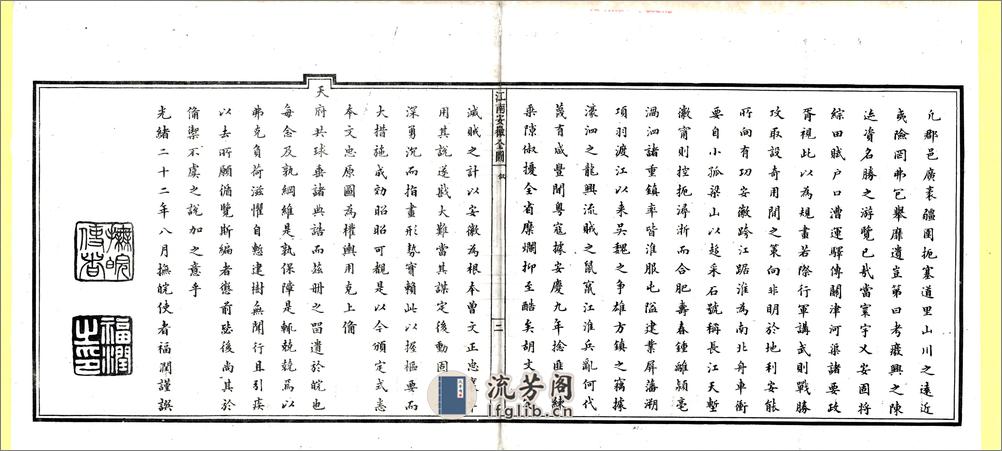 凡郡邑廣袤疆圉扼塞道里山川之遠近
夷險罔弗包舉靡遺豈第曰考嚴興之陳
迹資名勝之游覽已哉當寰宇乂安固將
綜田賦戶口漕運驛傳關津河渠諸要政
胥視此以為規畫若際行軍講武則戰勝
攻取設奇用閒之策向非明於地利安能
所向有功安徽跨江踞淮為南北舟車衝
要自小孤梁山以趍采石號稱長江天塹
徽甯則控扼浔浙而合肥壽春鍾離潁亳
渦泗諸重鎮率皆淮服屯隘建業屏藩溯
項羽渡江以來吳魏之爭雄方鎮之竊據
濠泗之龍興流賊之鼠竄江淮兵亂何代
蔑有咸豐閒粵寇據安慶九年捻匪
乘隙俶擾全省糜爛抑至酷矣胡文
滅賊之計以安徽為根本曾文正忠
用其說遂戡大難當其謀定後動固
深勇沉而指畫形勢實賴此以握樞要而
大措施成効昭昭可觀是以令頒定式悉
奉文忠原圖為權輿用克上備
天府共球垂諸典誥而茲冊之留遺於皖也
每念及孰綱維是孰保障是輒兢兢焉以
弗克負荷滋懼自慙建樹無聞行且引疾
以去所願備覽斯編者懲前毖後尚其於
備禦不虞之說加之意乎
光緒二十二年八月撫皖使者福潤謹譔
撫皖使者
福潤之印
江南安徽全圖
敘
二
流芳阁
lfglib.cn